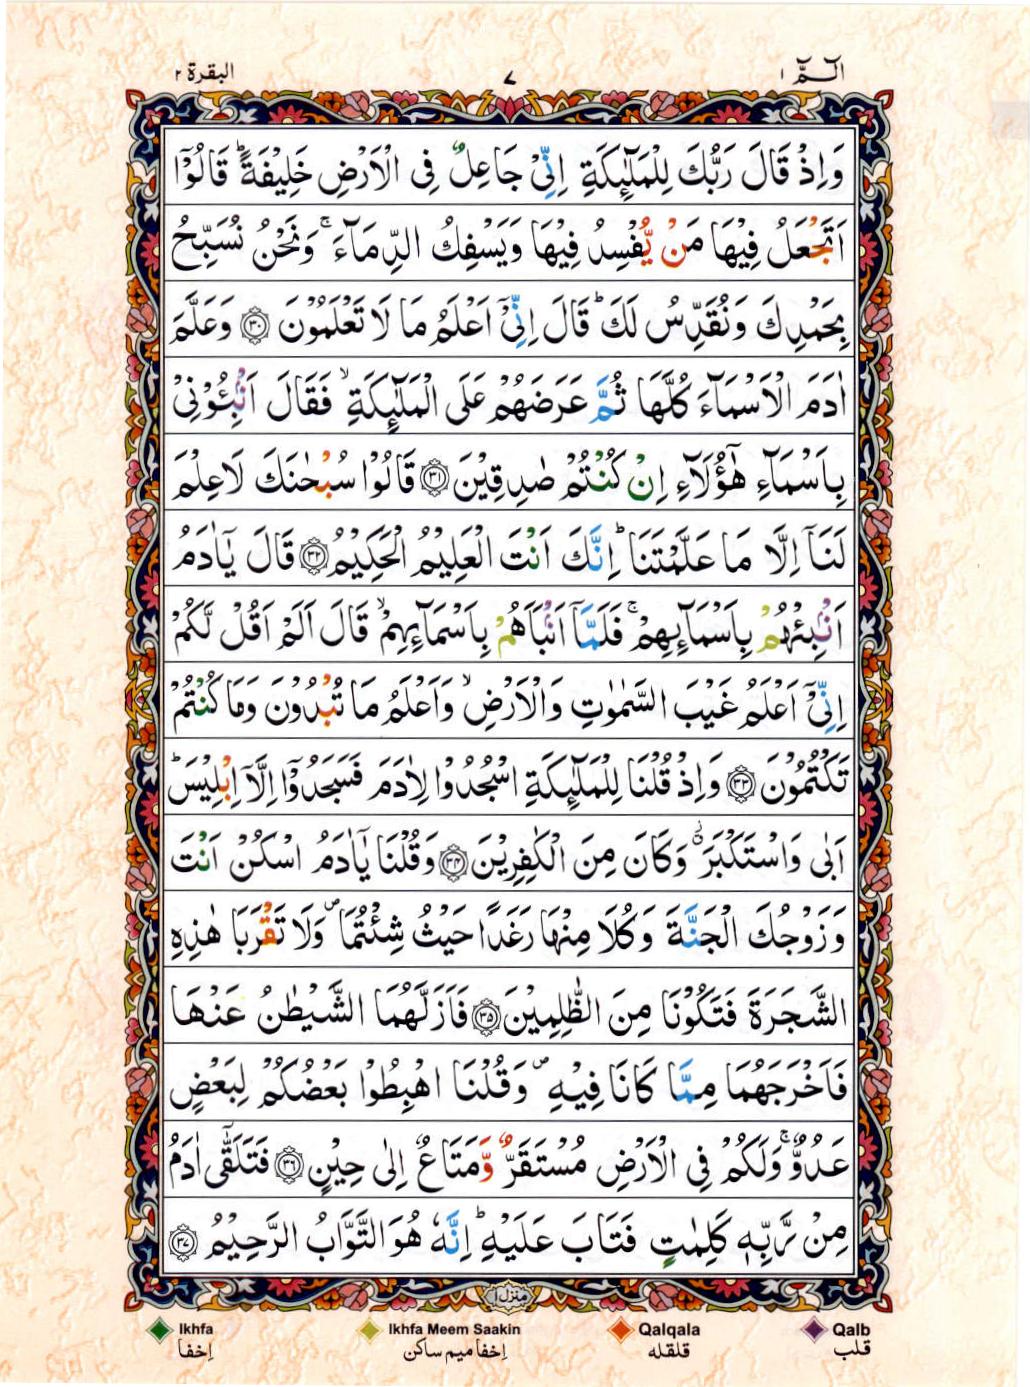 الٓـمّٓ ١
٧
البقرة ٢
وَاِذْ قَالَ رَبُّكَ لِلْمَلٰٓئِكَةِ اِنِّىْ جَاعِلٌ فِى الْاَرْضِ خَلِيْفَةً ؕ قَالُوْٓا
اَتَجْعَلُ فِيْهَا مَنْ يُّفْسِدُ فِيْهَا وَيَسْفِكُ الدِّمَآءَ ۚ وَنَحْنُ نُسَبِّحُ
بِحَمْدِكَ وَنُقَدِّسُ لَكَ ؕ قَالَ اِنِّىْٓ اَعْلَمُ مَا لَا تَعْلَمُوْنَ ﴿۳۰﴾ وَعَلَّمَ
اٰدَمَ الْاَسْمَآءَ كُلَّهَا ثُمَّ عَرَضَهُمْ عَلَى الْمَلٰٓئِكَةِ ۙ فَقَالَ اَنْۢبِـُٔوْنِىْ
بِاَسْمَآءِ هٰٓؤُلَآءِ اِنْ كُنْتُمْ صٰدِقِيْنَ ﴿۳۱﴾ قَالُوْا سُبْحٰنَكَ لَا عِلْمَ
لَنَآ اِلَّا مَا عَلَّمْتَنَا ؕ اِنَّكَ اَنْتَ الْعَلِيْمُ الْحَكِيْمُ ﴿۳۲﴾ قَالَ يٰٓاٰدَمُ
اَنْۢبِئْهُمْ بِاَسْمَآئِهِمْ ۚ فَلَمَّآ اَنْۢبَاَهُمْ بِاَسْمَآئِهِمْ ۙ قَالَ اَلَمْ اَقُلْ لَّكُمْ
اِنِّىْٓ اَعْلَمُ غَيْبَ السَّمٰوٰتِ وَالْاَرْضِ ۙ وَاَعْلَمُ مَا تُبْدُوْنَ وَمَا كُنْتُمْ
تَكْتُمُوْنَ ﴿۳۳﴾ وَاِذْ قُلْنَا لِلْمَلٰٓئِكَةِ اسْجُدُوْا لِاٰدَمَ فَسَجَدُوْٓا اِلَّآ اِبْلِيْسَ ؕ
اَبٰى وَاسْتَكْبَرَ ۗ وَكَانَ مِنَ الْكٰفِرِيْنَ ﴿۳۴﴾ وَقُلْنَا يٰٓاٰدَمُ اسْكُنْ اَنْتَ
وَزَوْجُكَ الْجَنَّةَ وَكُلَا مِنْهَا رَغَدًا حَيْثُ شِئْتُمَا ۪ وَلَا تَقْرَبَا هٰذِهِ
الشَّجَرَةَ فَتَكُوْنَا مِنَ الظّٰلِمِيْنَ ﴿۳۵﴾ فَاَزَلَّهُمَا الشَّيْطٰنُ عَنْهَا
فَاَخْرَجَهُمَا مِمَّا كَانَا فِيْهِ ۪ وَقُلْنَا اهْبِطُوْا بَعْضُكُمْ لِبَعْضٍ
عَدُوٌّ ۚ وَلَكُمْ فِى الْاَرْضِ مُسْتَقَرٌّ وَّمَتَاعٌ اِلٰى حِيْنٍ ﴿۳۶﴾ فَتَلَقّٰٓى اٰدَمُ
مِنْ رَّبِّهٖ كَلِمٰتٍ فَتَابَ عَلَيْهِ ؕ اِنَّهٗ هُوَ التَّوَّابُ الرَّحِيْمُ ﴿۳۷﴾
منزل ۱
Ikhfa
اِخفا
Ikhfa Meem Saakin
اِخفا میم ساکن
Qalqala
قلقله
Qalb
قلب